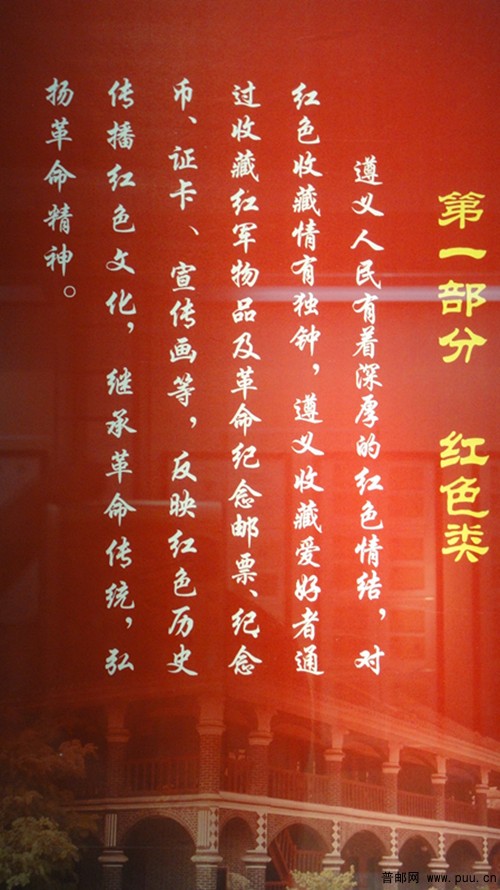 第一部分 红色类
遵义人民有着深厚的红色情结，对
红色收藏情有独钟，遵义收藏爱好者通
过收藏红军物品及革命纪念邮票、纪念
币、证卡、宣传画等，反映红色历史
传播红色文化，继承革命传统，弘
扬革命精神。
普邮网 www.puu.cn